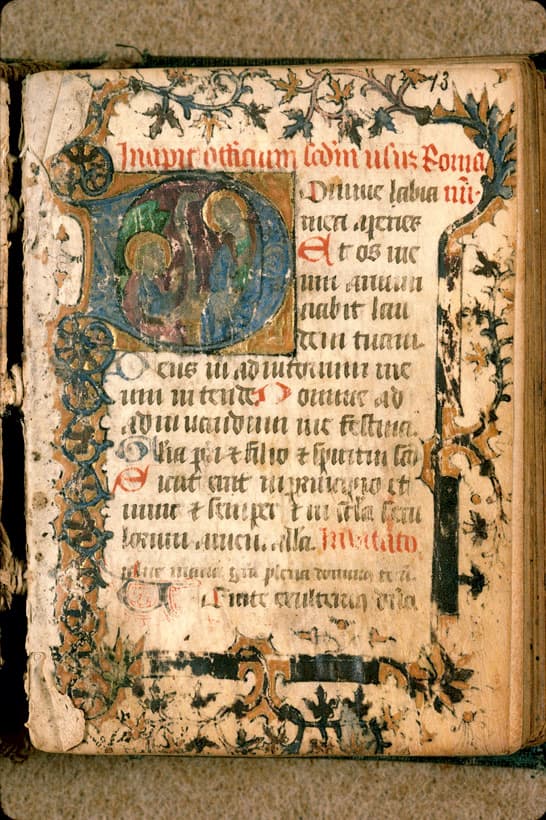 13
Incipit officium scdm usuz Roma
num.
Domine labia
mea aperies
Et os me
um anun
ciabit lau
dem tuam.
Deus in adiutorium me
um intende Domine ad
adiuuandum me festina.
Glia pri et filio et spiritui sco
Sicut erat in principio et
nunc et semper et in scla secu
lorum amen. alla. Inuitato
Aue maria gra plena dominus tecu.
Uenite exultemus dno